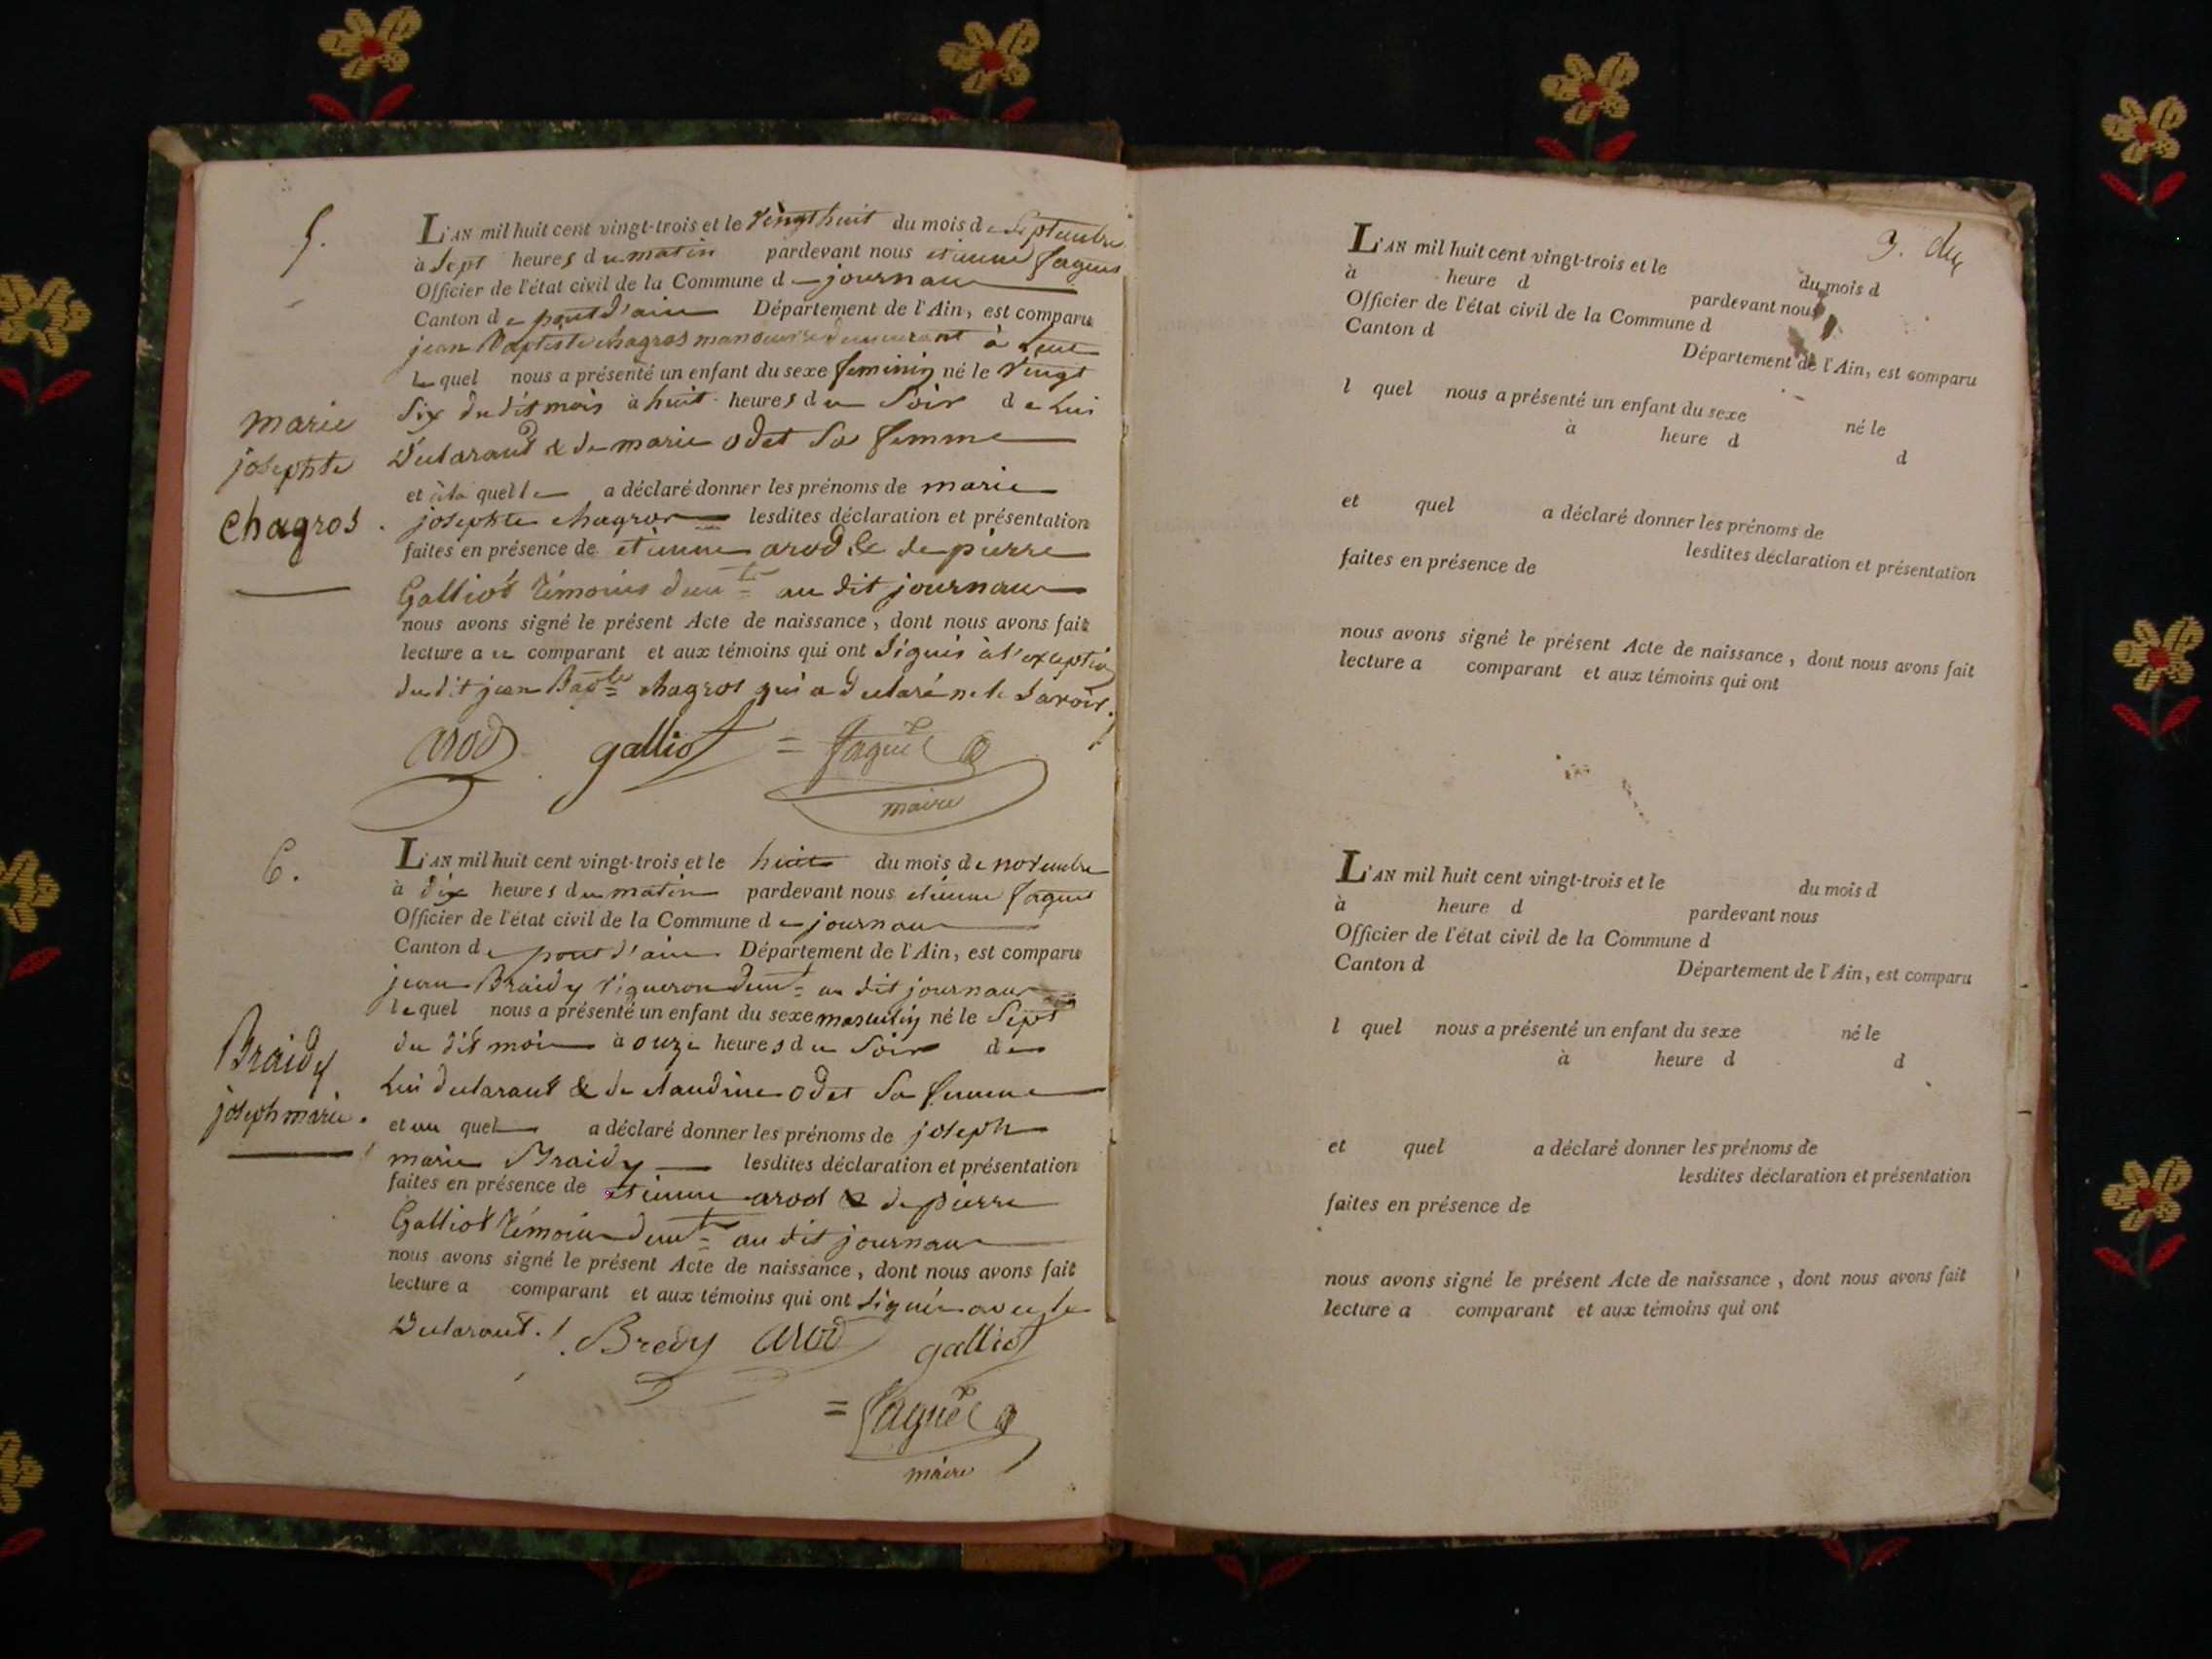 5.
L'AN mil huit cent vingt-trois et le vingt huit du mois de Septembre
à Sept heures du matin pardevant nous etienne faguet
Officier de l'état civil de la Commune de journans
Canton de pont d'ain Département de l'Ain, est comparu
jean Baptiste chagros manouvrier demeurant à
le quel nous a présenté un enfant du sexe feminin né le vingt
Six du dit mois à huit heures du Soir de Lui
Declarant & de marie odet Sa femme
et à la quelle a déclaré donner les prénoms de marie
josephte chagros lesdites déclaration et présentation
faites en présence de etienne arod & de pierre
Galliot témoins demt au dit journans
nous avons signé le présent Acte de naissance, dont nous avons fait
lecture a ce comparant et aux témoins qui ont Signés à l'exception
du dit jean Baptte chagros qui a declaré ne le Savoir.
marie
josephte
Chagros.
arod galliot = faguet
maire
6.
L'AN mil huit cent vingt-trois et le huit du mois de novembre
à dix heures du matin pardevant nous etienne faguet
Officier de l'état civil de la Commune de journans
Canton de pont d'ain Département de l'Ain, est comparu
jean Braidy vigneron demt au dit journans
le quel nous a présenté un enfant du sexe masculin né le Sept
du dit mois à onze heures du Soir de
Lui declarant & de claudine odet Sa femme
et au quel a déclaré donner les prénoms de joseph
marie Braidy lesdites déclaration et présentation
faites en présence de etienne arod & de pierre
Galliot témoins demt au dit journans
nous avons signé le présent Acte de naissance, dont nous avons fait
lecture a comparant et aux témoins qui ont Signés avec le
Declarant.
Braidy
joseph marie.
Bredy arod galliot
= faguet
maire
L'AN mil huit cent vingt-trois et le du mois d
à heure d pardevant nous
Officier de l'état civil de la Commune d
Canton d Département de l'Ain, est comparu
l quel nous a présenté un enfant du sexe né le
à heure d d
et quel a déclaré donner les prénoms de
lesdites déclaration et présentation
faites en présence de
nous avons signé le présent Acte de naissance, dont nous avons fait
lecture a comparant et aux témoins qui ont
L'AN mil huit cent vingt-trois et le du mois d
à heure d pardevant nous
Officier de l'état civil de la Commune d
Canton d Département de l'Ain, est comparu
l quel nous a présenté un enfant du sexe né le
à heure d d
et quel a déclaré donner les prénoms de
lesdites déclaration et présentation
faites en présence de
nous avons signé le présent Acte de naissance, dont nous avons fait
lecture a comparant et aux témoins qui ont